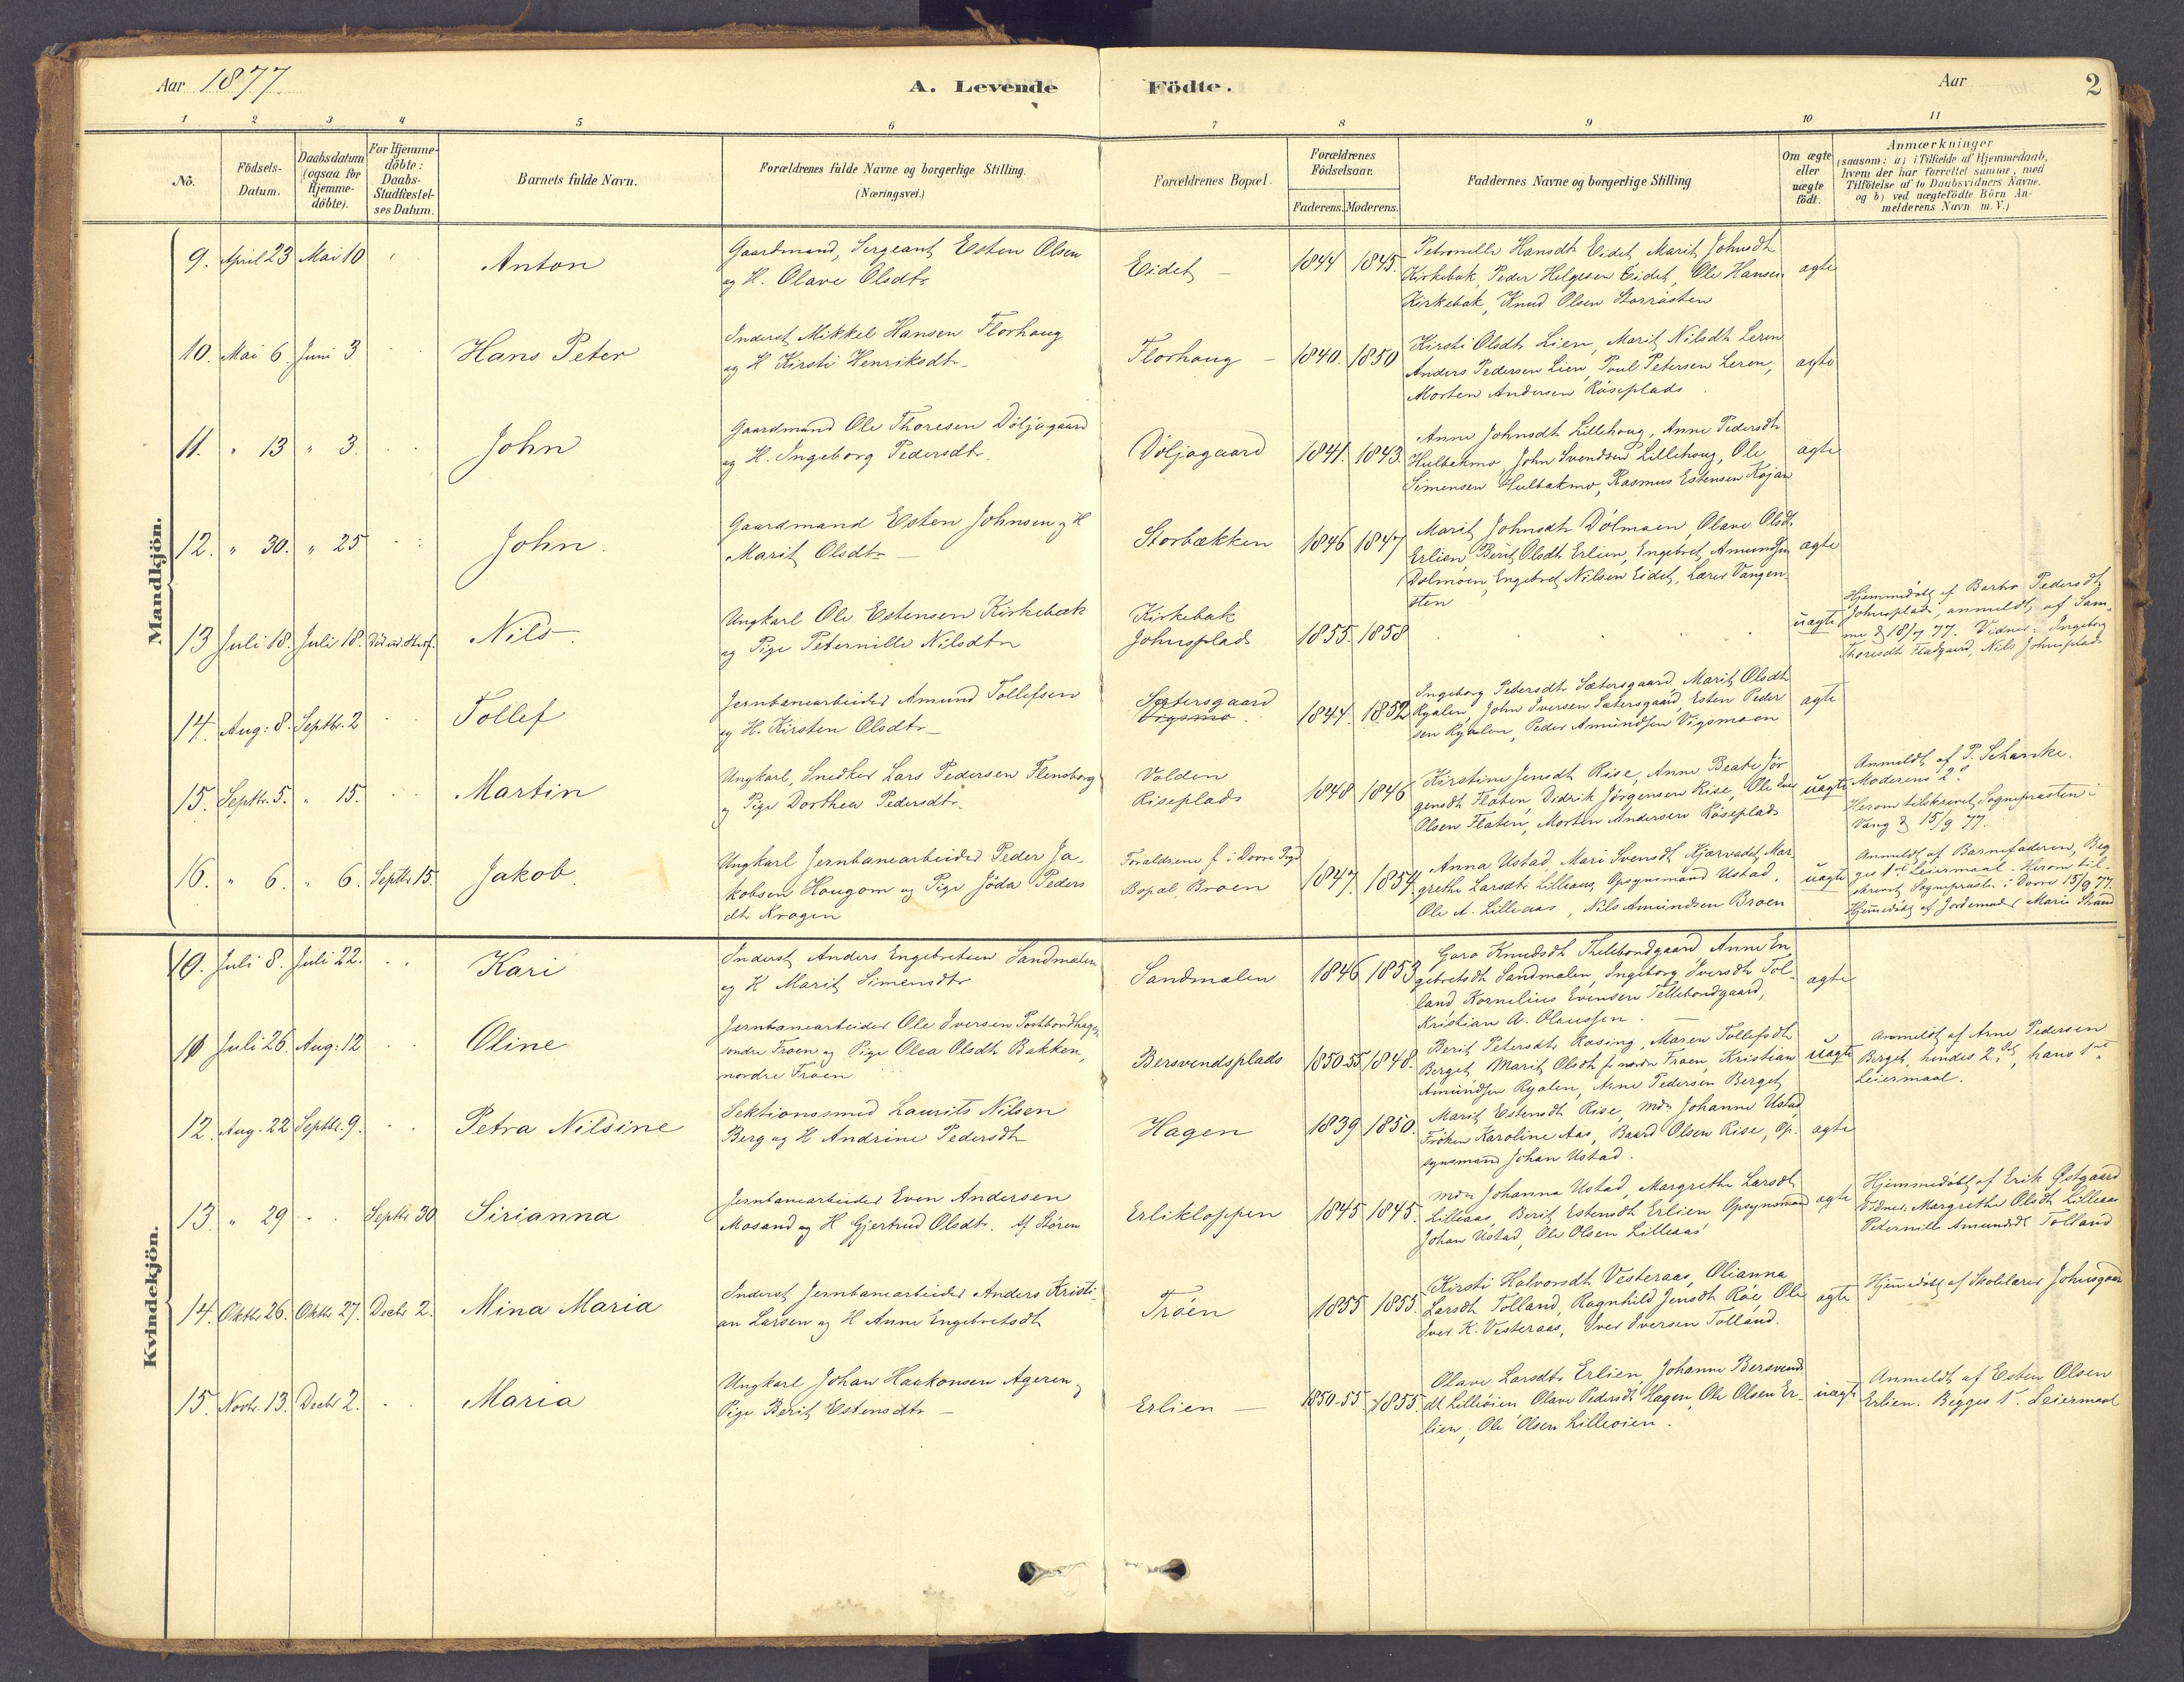 Aar 1877.
A. Levende Födte.
Aar
2
1 2 3 4 5 6 7 8 9 10 11
No.
Födsels-
Datum.
Daabsdatum
(ogsaa for
Hjemme-
döbte).
For Hjemme-
döbte:
Daabs-
Stadfæstel-
ses Datum.
Barnets fulde Navn.
Forældrenes fulde Navne og borgerlige Stilling.
(Næringsvei.)
Forældrenes Bopæl.
Forældrenes
Födselsaar.
Faderens. Moderens.
Faddernes Navne og borgerlige Stilling
Om ægte
eller
uægte
födt.
Anmærkninger
(saasom: a) i Tilfælde af Hjemmedaab,
hvem der har forrettet samme, med
Tilföielse af to Daabsvidners Navne.
og b) ved uægtefödte Börn An-
melderens Navn m. V.)
Mandkjön.
9. April 23 Mai 10
Anton
Gaardmand, Sergeant Esten Olsen
og H. Olave Olsdtr
Eidet
1844 1845.
Petronelle Hansdtr Eidet, Marit Johnsdtr
Kirkebak, Peder Helgesen Eidet, Ole Hansen
Kirkebak, Knud Olsen Storrøsten
ægte
10. Mai 6. Juni 3
Hans Peter
Inderst Mikkel Hansen Florhaug
og H Kirsti Henriksdtr
Florhaug
1840. 1850
Kirsti Olsdtr Lien, Marit Nilsdtr Leren
Anders Pedersen Lien, Poul Petersen Leren,
Morten Andersen Röseplads
ægte
11. " 13 " 3.
John
Gaardmand Ole Thoresen Döljegaard
og H. Ingeborg Pedersdtr.
Döljagaard
1841. 1843.
Anne Johnsdtr Lillehoug, Anne Pedersdtr
Hulbakmo, John Svendsen Lillehoug, Ole
Simensen Hulbakmo, Rasmus Estensen Kojan
ægte
12. " 30. " 25
John.
Gaardmand Esten Johnsen og H
Marit Olsdtr
Storbækken
1846 1847
Marit Johnsdtr Dölmoen, Olave Olsdt.
Erlien, Berit Olsdtr Erlien, Engebret Amundsen
Dolmöen, Engebret Nilsen Eidet, Lærer Vangen
sten
ægte
13 Juli 18. Juli 18.
Nils
Ungkarl Ole Estensen Kirkebæk
og Pige Peternille Nilsdtr
Kirkebak
Johnsplads
1855. 1858
uægte
Hjemmedöbt af Barbro Pedersdtr
Johnsplads, anmeldt af Sam-
me d 18/7 77. Vidner: Ingeborg
Thoresdtr Fladgaard, Nils Johnsplads
14. Aug: 8. Septbr. 2
Tollef
Jernbanearbeider Amund Tollefsen
og H. Kirsten Olsdtr
Sætersgaard
Vigsmo
1844. 1852
Ingeborg Pedersdtr Sætersgaard Marit Olsdtr
Ryalen, John Iversen Sætersgaard, Esten Peder
sen Ryalen, Peder Amundsen Vigsmoen
ægte
15. Septbr. 5. " 15.
Martin
Ungkarl, Snedker Lars Pedersen Flensborg
og Pige Dorthea Pedersdtr
Volden
Riseplads
1848 1846
Kirstine Jensdtr Rise, Anne Beate Jör
gensdtr Flaten, Didrik Jörgensen Rise, Ole Iver
Olsen Flaten, Morten Andersen Röseplads
uægte
Anmeldt af P. Schanke.
Moderens 2det
Herom tilskrevet Sognepræsten i
Vang d 15/9 77.
16. " 6. " 6. Septbr 15.
Jakob.
Ungkarl Jernbanearbeider Peder Ja-
kobsen Hougom og Pige Jöda Peders
dtr Kragen
Forældrene f. i Dovre
Bopæl Broen
1847. 1854.
Anna Ustad, Mari Svensdtr Kjærvadet, Mar-
grethe Larsdtr Lilleaas, Opsynsmand Ustad,
Ole A. Lilleaas, Nils Amundsen Broen
uægte
Anmeldt af Barnefaderen, Beg
ges 1ste Leiermaal. Herom til-
skrevet Sognepræst. i Dovre 15/9 77.
Hjemmedöbt af Jordemoder Marie Strand
Kvindekjön.
10. Juli 8. Juli 22.
Kari
Inderst Anders Engebretsen Sandmælen
og H Marit Simensdtr
Sandmælen
1846 1853
Goro Knudsdtr Thellebondgaard Anne En
gebretsdtr Sandmælen, Ingeborg Iversdtr Tol-
land Kornelius Evensen Tellebondgaard,
Kristian A. Olaussen.
ægte
11 Juli 26. Aug: 12
Oline
Jernbanearbeider Ole Iversen Postbondhagen
söndre Troen og Pige Olea Olsdtr Bakken,
nordre Troen
Bersvendsplads
1850-55 1848.
Berit Petersdtr Rasing, Maren Tollefsdtr
Berget Marit Olsdtr fr nordre Troen, Kristian
Amundsen Ryalen, Arne Pedersen Berget
uægte
Anmeldt af Arne Pedersen
Berget, hindes 2det, hans 1ste
Leiermaal.
12. Aug. 22 Septbr. 9.
Petra Nilsine
Sektionssmed Laurits Nilsen
Berg og H Andrine Pedersdtr
Hagen
1839 1850.
Marit Estensdtr Rise, Mdm Johanne Ustad
Fröken Karoline Aas, Baard Olsen Rise, Op-
synsmand Johan Ustad.
ægte
13. " 29 Septbr 30
Sirianna
Jernbanearbeider Even Andersen
Mosand og H Gjertrud Olsdtr. Af Stören
Erlikloppen
1845 1845.
Mdm Johanna Ustad, Margrethe Larsdtr
Lilleaas, Berit Estensdtr Erlien Opsynsmand
Johan Ustad, Ole Olsen Lilleaas
ægte
Hjemmedöbt af Erik Östgaard
Vidner: Margrethe Olsdtr Lilleaas
Peternille Amundsdt Tolland
14. Oktbr 26. Oktbr 27. Decbr 2.
Mina Maria
Inderst Jernbanearbeider Anders Kristi-
an Larsen og H Anne Engebretsdtr
Tröen
1855 1855.
Kirsti Halvorsdtr Vesteraas, Olianna
Larsdtr Tolland, Ragnhild Jensdtr Röe, Ole
Iver K. Vesteraas, Iver Iversen Tolland.
ægte
Hjemmedöbt af Skolelærer Johnsgaard
15. Novbr. 13. Decbr 2.
Maria
Ungkarl Johan Haakonsen Ageren og
Pige Berit Estensdtr
Erlien
1850-55. 1855.
Olave Larsdtr Erlien, Johanne Bersvends
dt Lilleöien Olave Pedersdtr Hagen, Ole Olsen Er-
lien, Ole Olsen Lilleöien.
uægte
Anmeldt af Esten Olsen
Erlien. Begges 1st Leiermaal